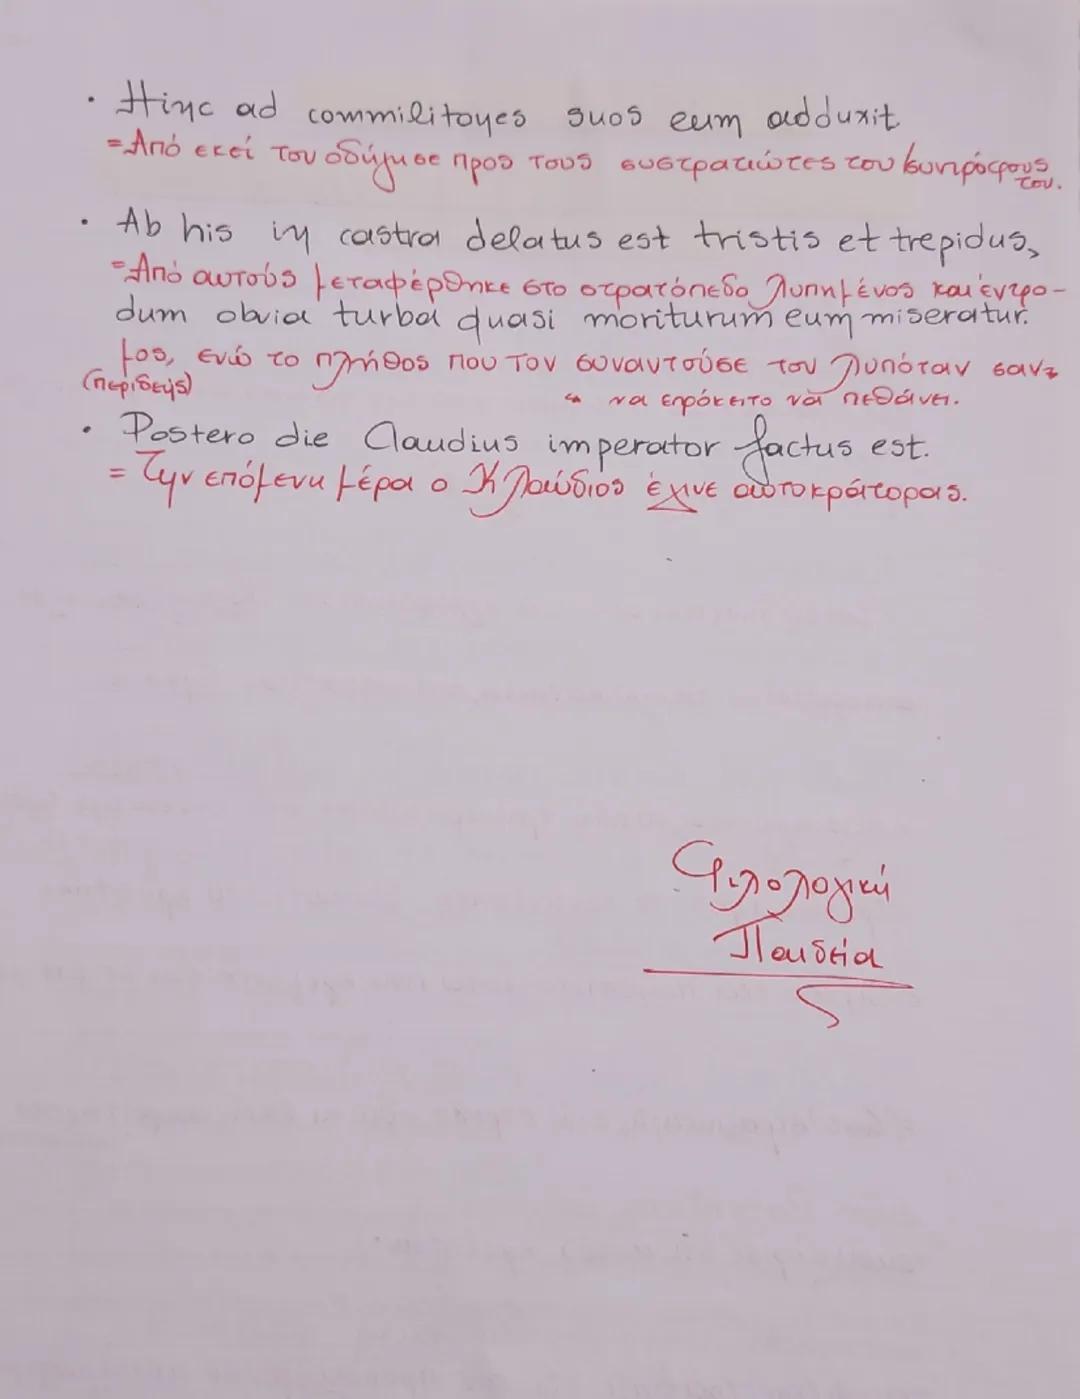 · Hinc ad commilitones suos eum adduxit
= Από εκεί τον οδήγησε προς τους συστρατιώτες του συντρόφους του.
· Ab his in castra delatus est tristis et trepidus,
= Από αυτούς μεταφέρθηκε στο στρατόπεδο λυπημένος και έντρο-
dum obvia turba quasi moriturum eum miseratur.
μος, ενώ το πλήθος που τον συναντούσε τον λυπόταν σαν
(περιδεής)
↳ να επρόκειτο να πεθάνει.
· Postero die Claudius imperator factus est.
= Την επόμενη μέρα ο Κλαύδιος έγινε αυτοκράτορας.
Φιλολογική
Παιδεία